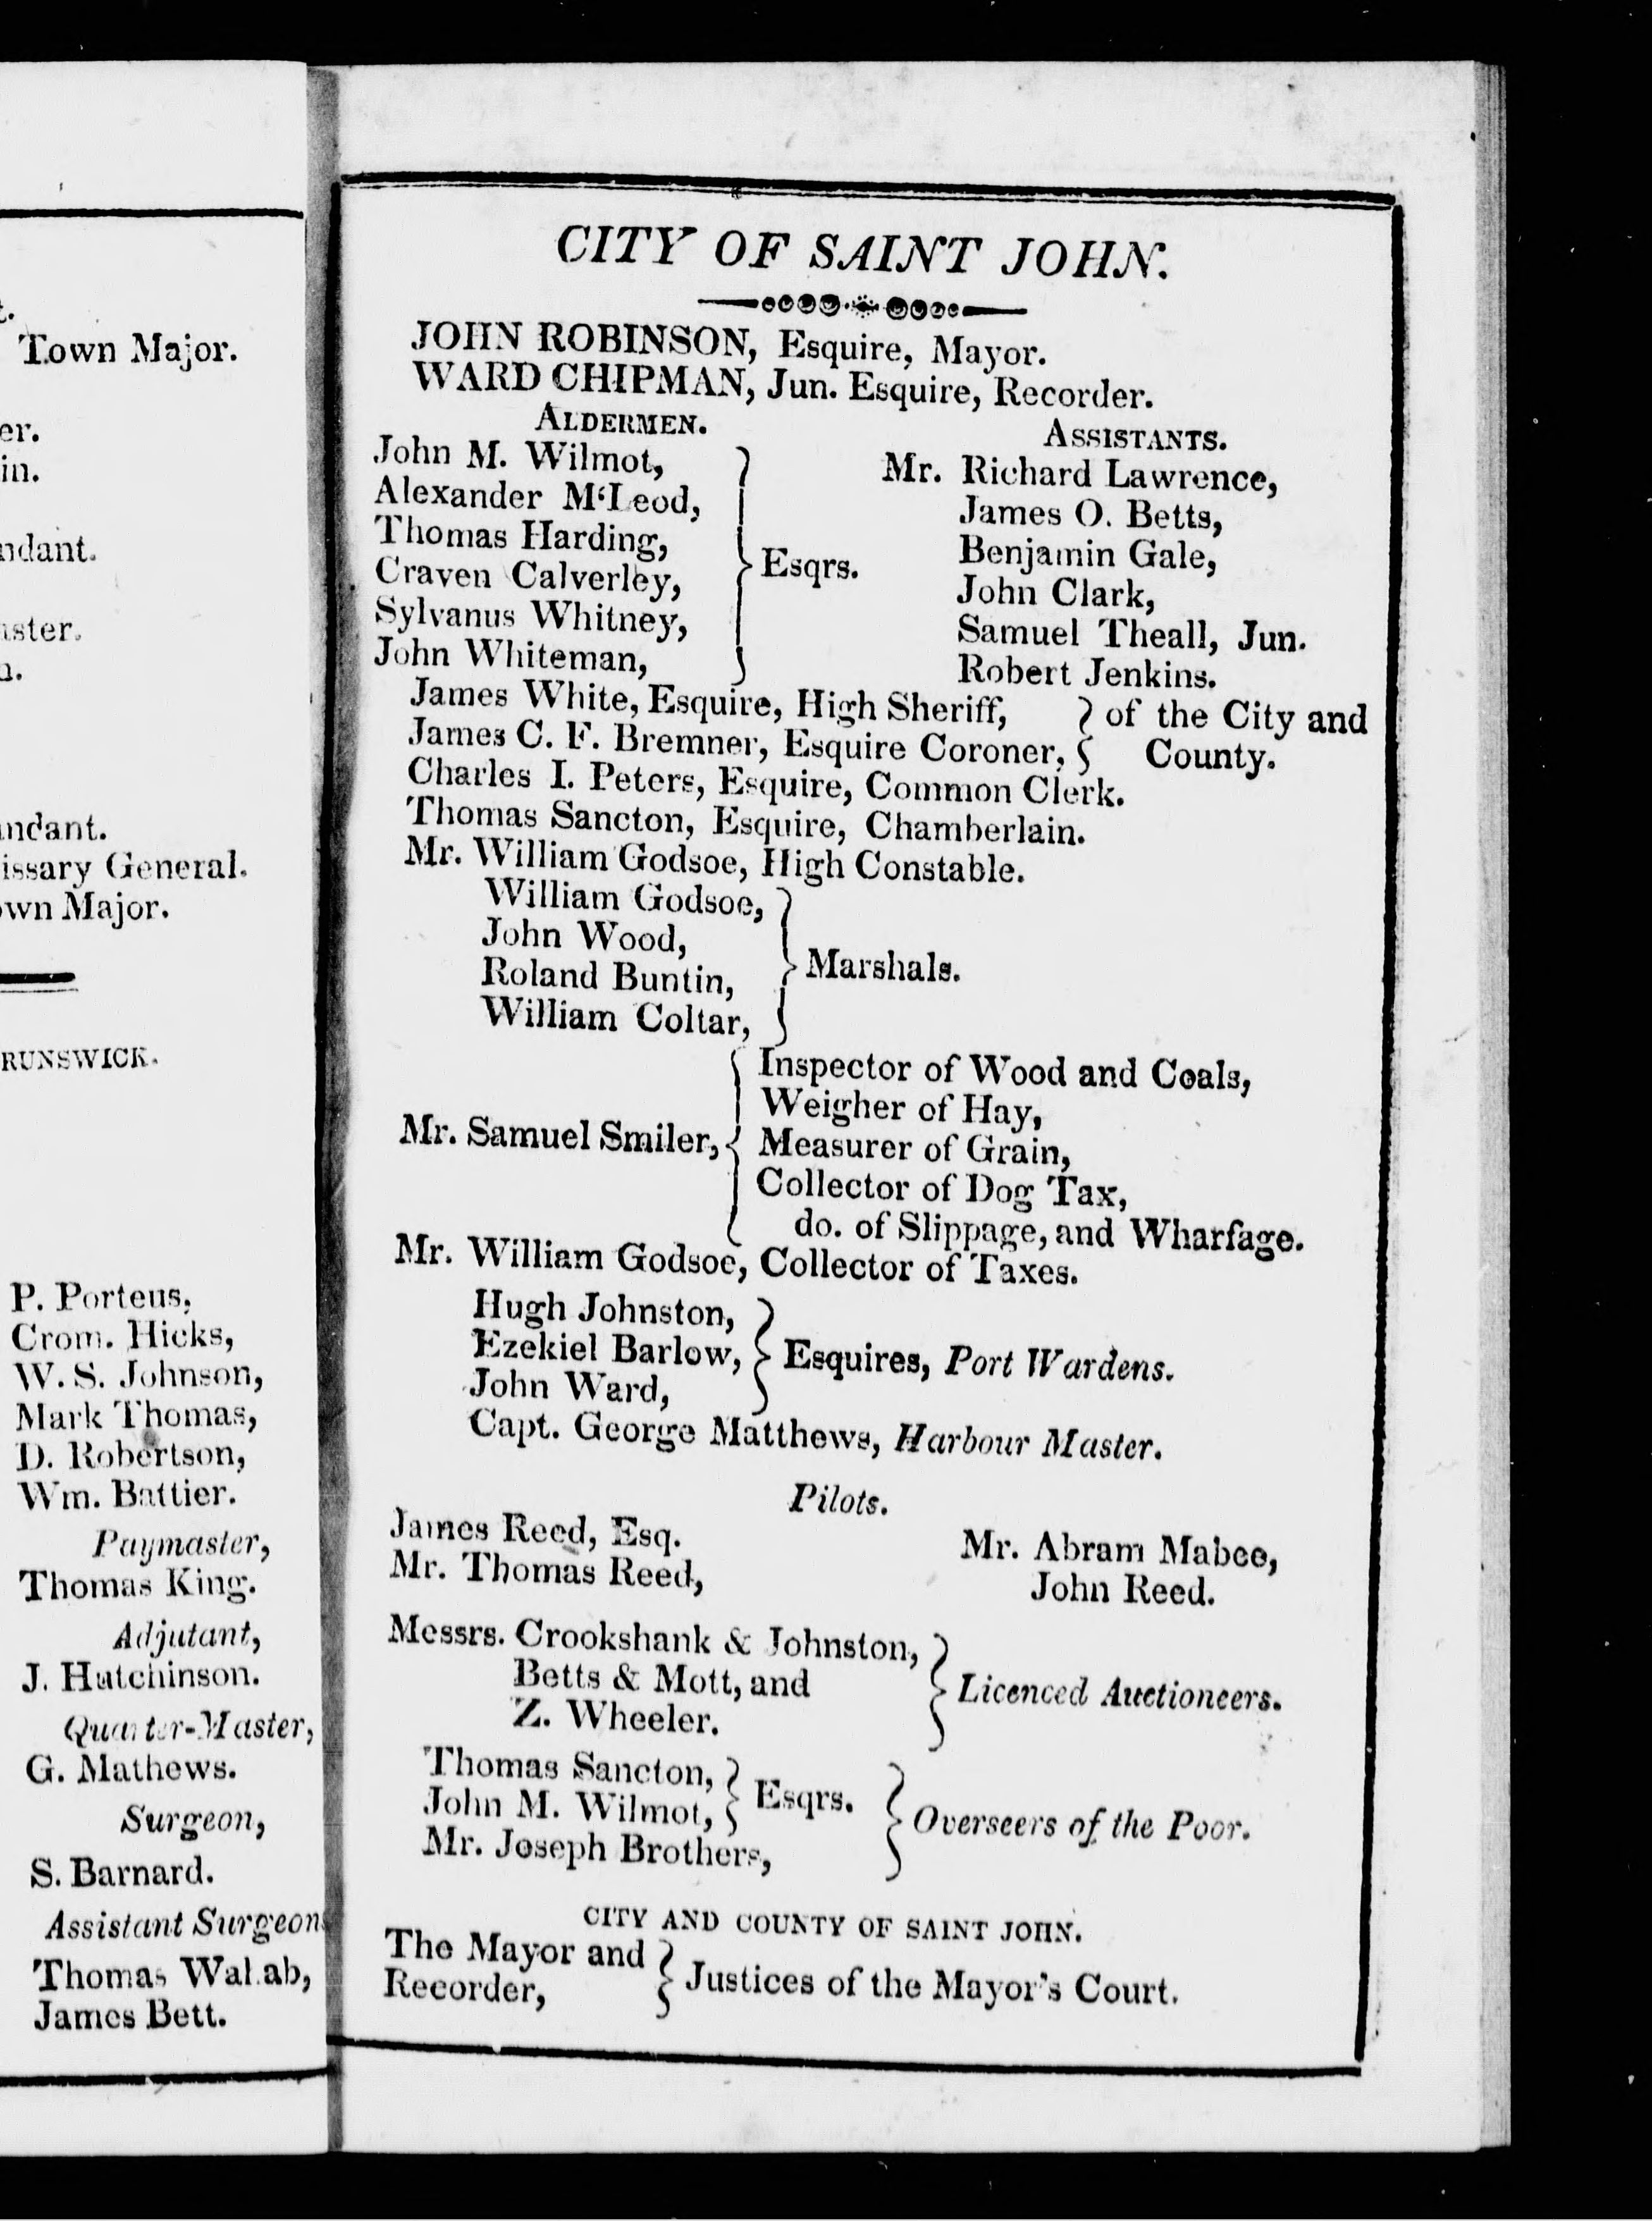 t.
Town Major.
er.
in.
ndant.
ster.
n.
ndant.
issary General.
own Major.
RUNSWICK.
P. Porteus,
Crom. Hicks,
W. S. Johnson,
Mark Thomas,
D. Robertson,
Wm. Battier.
Paymaster,
Thomas King.
Adjutant,
J. Hutchinson.
Quarter-Master,
G. Mathews.
Surgeon,
S. Barnard.
Assistant Surgeon
Thomas
James Bett.
CITY OF SAINT JOHN.
JOHN ROBINSON, Esquire, Mayor.
WARD CHIPMAN, Jun. Esquire, Recorder.
ALDERMEN.
John M. Wilmot,
Alexander M‘Leod,
Thomas Harding,
Craven Calverley,
Sylvanus Whitney,
John Whiteman,
Esqrs.
ASSISTANTS.
Mr. Richard Lawrence,
James O. Betts,
Benjamin Gale,
John Clark,
Samuel Theall, Jun.
Robert Jenkins.
James White, Esquire, High Sheriff,
James C. F. Bremner, Esquire Coroner,
of the City and
County.
Charles I. Peters, Esquire, Common Clerk.
Thomas Sancton, Esquire, Chamberlain.
Mr. William Godsoe, High Constable.
William Godsoe,
John Wood,
Roland Buntin,
William Coltar,
Marshals.
Mr. Samuel Smiler,
Inspector of Wood and Coals,
Weigher of Hay,
Measurer of Grain,
Collector of Dog Tax,
do. of Slippage, and Wharfage.
Mr. William Godsoe, Collector of Taxes.
Hugh Johnston,
Ezekiel Barlow,
John Ward,
Esquires, Port Wardens.
Capt. George Matthews, Harbour Master.
Pilots.
James Reed, Esq.
Mr. Thomas Reed,
Mr. Abram Mabee,
John Reed.
Messrs. Crookshank & Johnston,
Betts & Mott, and
Z. Wheeler.
Licenced Auctioneers.
Thomas Sancton,
John M. Wilmot,
Esqrs.
Mr. Joseph Brothers,
Overseers of the Poor.
CITY AND COUNTY OF SAINT JOHN.
The Mayor and
Recorder,
Justices of the Mayor's Court.